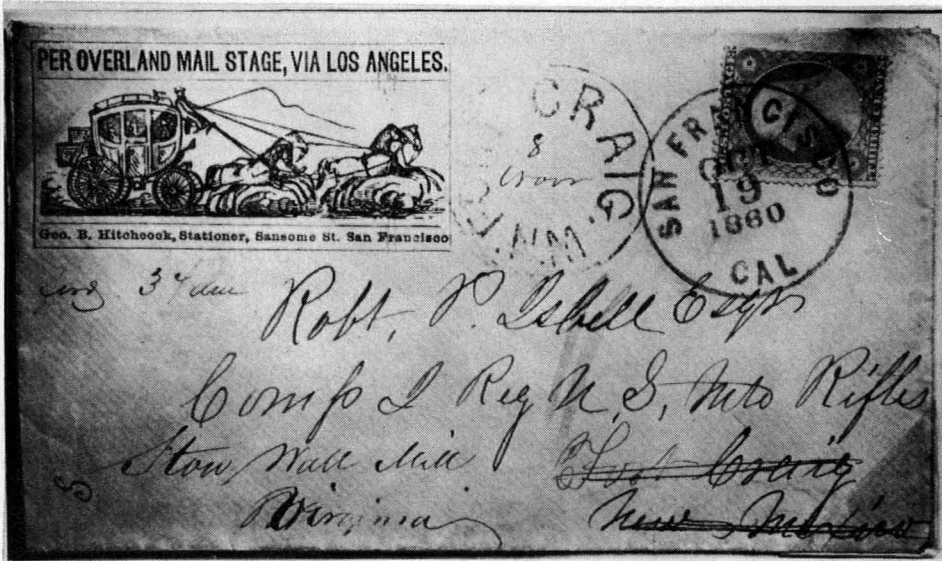 PER OVERLAND MAIL STAGE, VIA LOS ANGELES.
Geo. B. Hitchcock, Stationer, Sansome St. San Francisco
CRAIG. N.M.
8
Nov
SAN FRANCISCO
OCT
19
1860
CAL
Robt. P. Isbell Esqr
Comp I Reg U.S. Mtd Rifles
Stow Wall Mill Fort Craig
Virginia New Mexico